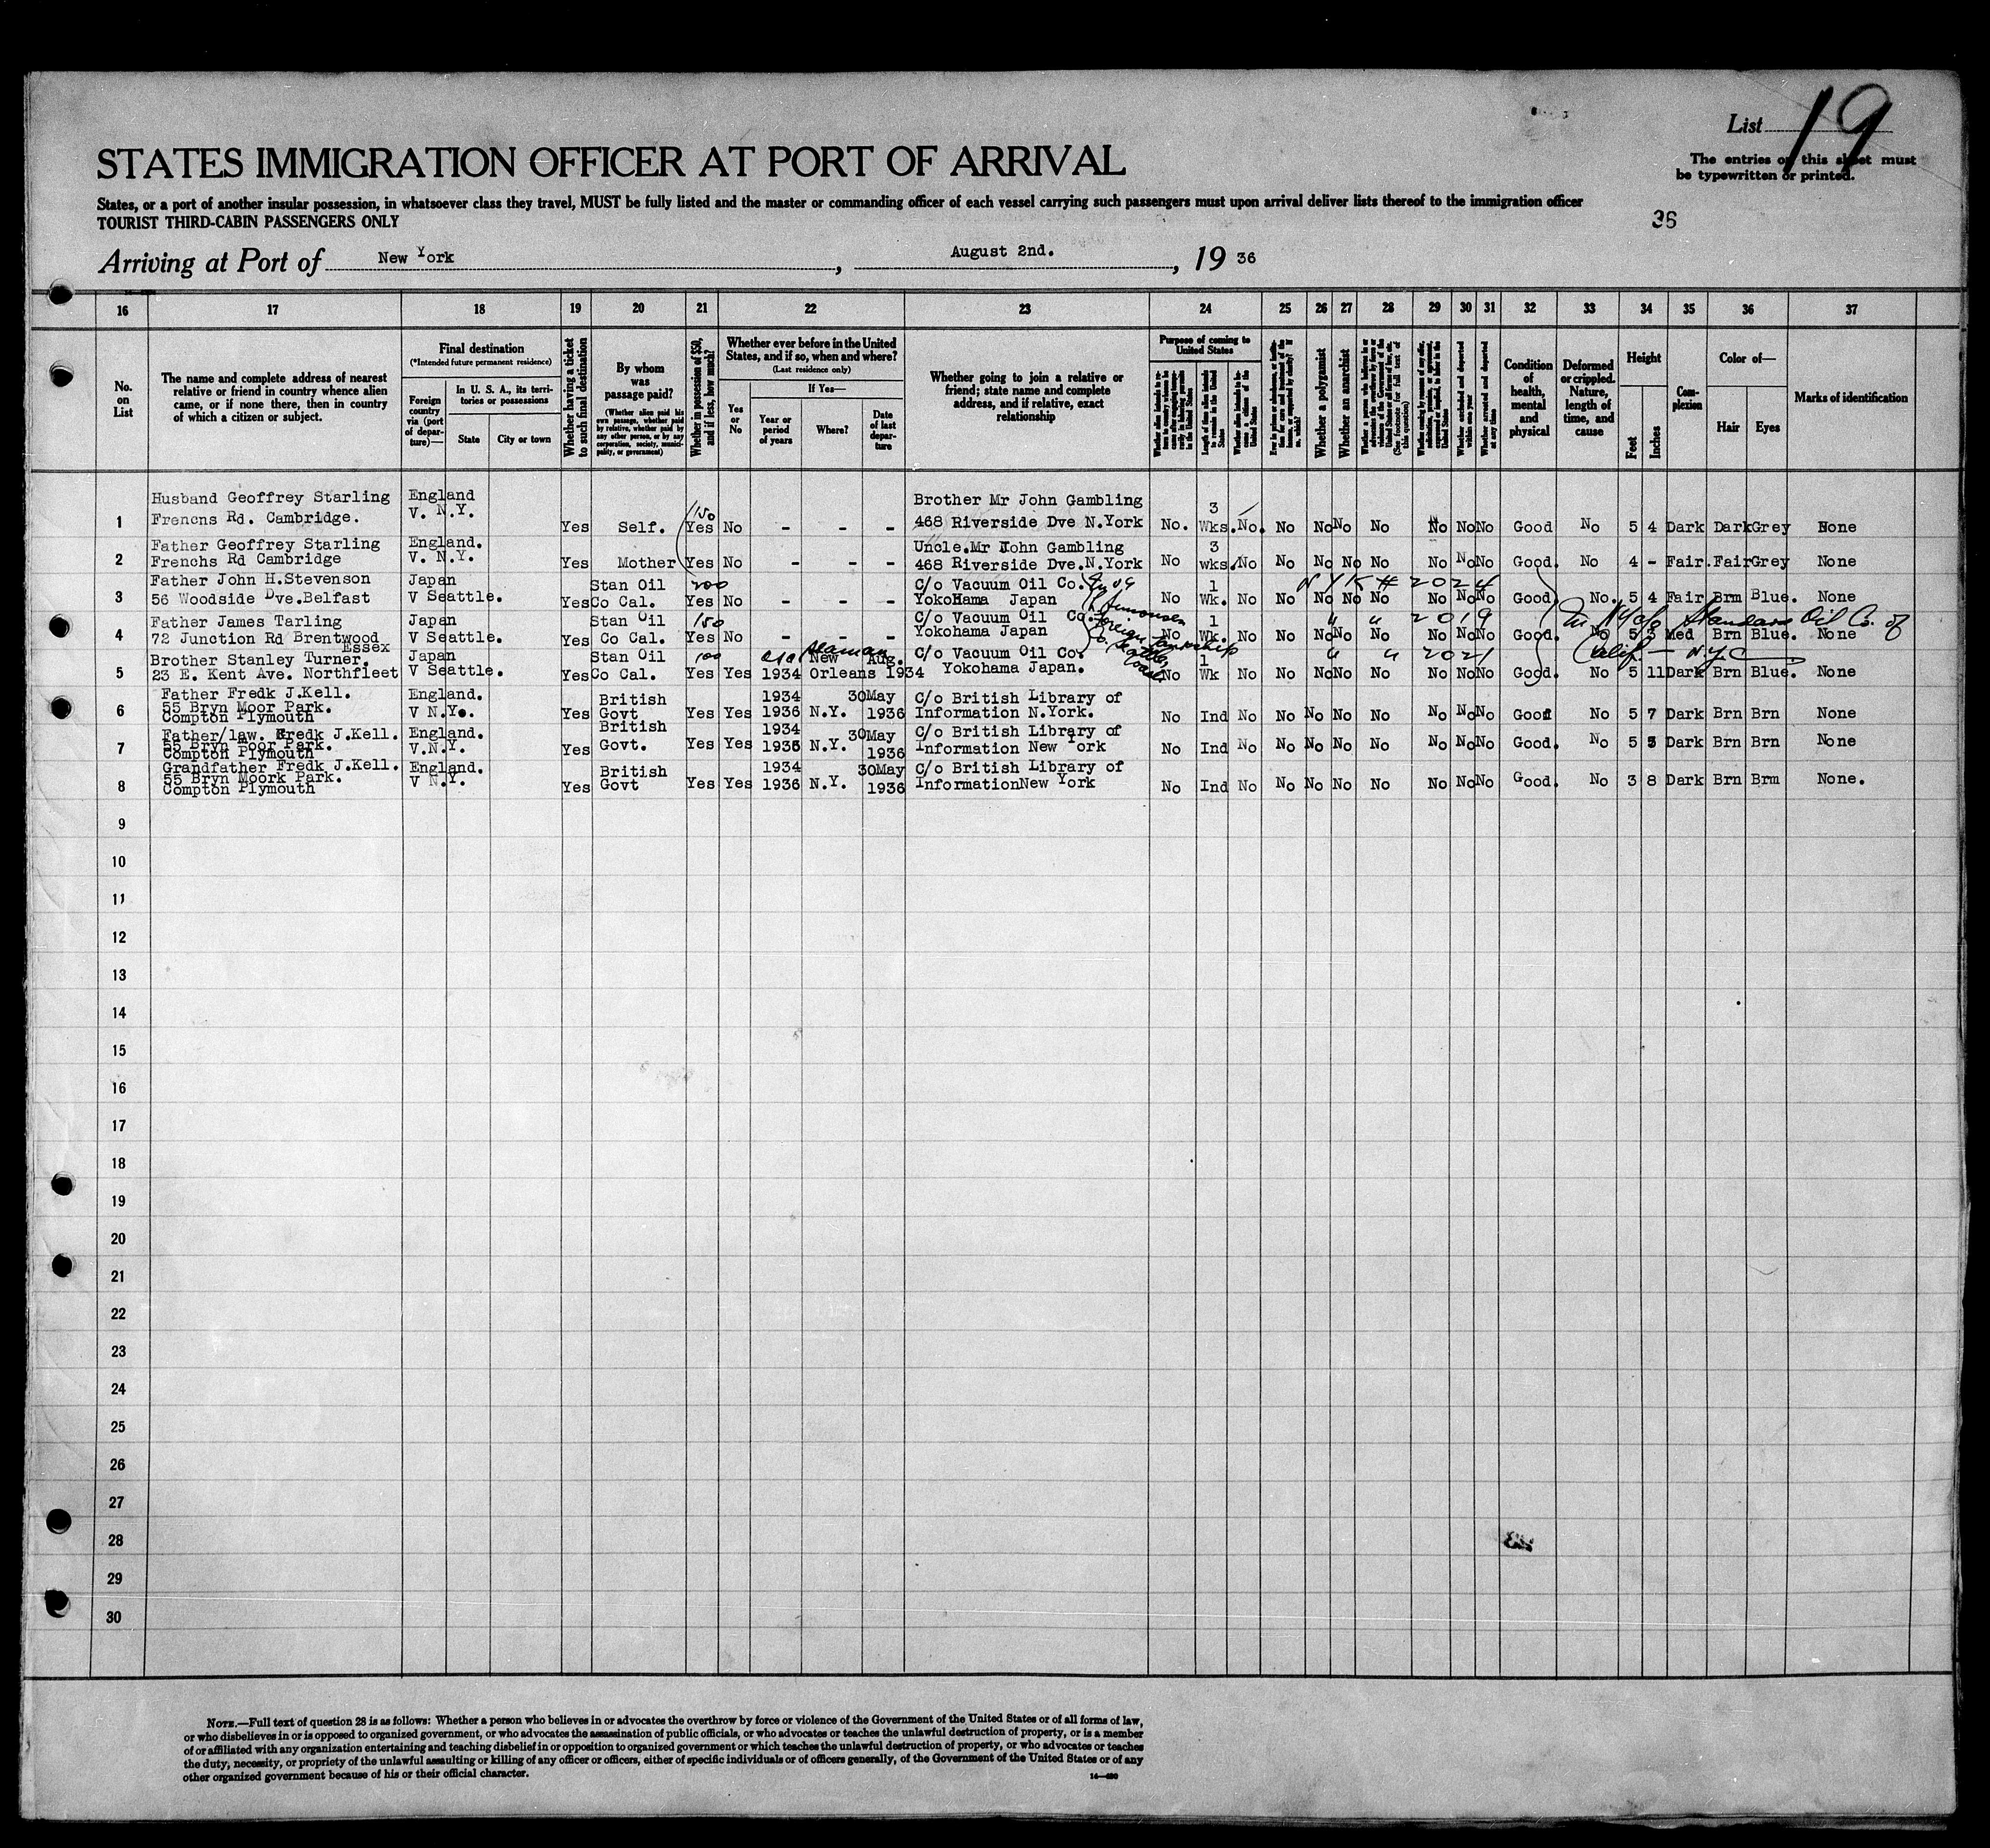 List 19
The entries on this sheet must
be typewritten or printed.
STATES IMMIGRATION OFFICER AT PORT OF ARRIVAL
States, or a port of another insular possession, in whatsoever class they travel, MUST be fully listed and the master or commanding officer of each vessel carrying such passengers must upon arrival deliver lists thereof to the immigration officer
TOURIST THIRD-CABIN PASSENGERS ONLY
36
Arriving at Port of New York, August 2nd., 19 36
16 17 18 19 20 21 22 23 24 25 26 27 28 29 30 31 32 33 34 35 36 37
No. on List
The name and complete address of nearest relative or friend in country whence alien came, or if none there, then in country of which a citizen or subject.
Final destination
(*Intended future permanent residence)
Foreign country via (port of departure)—
In U. S. A., its territories or possessions
State
City or town
Whether having a ticket to such final destination
By whom was passage paid?
(Whether alien paid his own passage, whether paid by relative, whether paid by any other person, or by any corporation, society, municipality, or government)
Whether in possession of $50, and if less, how much?
Whether ever before in the United States, and if so, when and where?
(Last residence only)
Yes or No
If Yes—
Year or period of years
Where?
Date of last departure
Whether going to join a relative or friend; state name and complete address, and if relative, exact relationship
Purpose of coming to United States
Length of time alien intends to remain in the United States
Whether alien intends to become a citizen of the United States
Whether a polygamist
Whether an anarchist
(See footnote for full text of this question)
Whether arrested and deported at any time
Condition of health, mental and physical
Deformed or crippled. Nature, length of time, and cause
Height
Feet
Inches
Complexion
Color of—
Hair
Eyes
Marks of identification
1 Husband Geoffrey Starling England Brother Mr John Gambling 3
Frencns Rd. Cambridge. V. N.Y. Yes Self. 150 Yes No - - - 468 Riverside Dve N.York No. Wks. No. No No No No No No No Good No 5 4 Dark Dark Grey None
2 Father Geoffrey Starling England. Uncle.Mr John Gambling 3
Frenchs Rd Cambridge V. N.Y. Yes Mother Yes No - - - 468 Riverside Dve.N.York No wks. No No No No No No No No Good. No 4 - Fair. Fair Grey None
3 Father John H.Stevenson Japan Stan Oil 200 C/o Vacuum Oil Co. 1 NYK # 2024
56 Woodside Dve.Belfast V Seattle. Yes Co Cal. Yes No - - - YokoHama Japan No Wk. No No No No No No No No Good No. 5 4 Fair Brm Blue. None
4 Father James Tarling Japan Stan Oil 150 C/o Vacuum Oil Co. 1 " " 2019 Standard Oil Co. of
72 Junction Rd Brentwood Essex V Seattle. Yes Co Cal. Yes No - - - Yokohama Japan No Wk. No No No No No No No No Good. No 5 3 Med Brn Blue. None
5 Brother Stanley Turner. Japan Stan Oil 100 seaman New Aug. C/o Vacuum Oil Co. 1 " " 2021 Calif — N.Y.C
23 E. Kent Ave. Northfleet V Seattle. Yes Co Cal. Yes Yes 1934 Orleans 1934 Yokohama Japan. No Wk No No No No No No No No Good. No 5 11 Dark Brn Blue. None
6 Father Fredk J.Kell. England. British 1934 30May C/o British Library of
55 Bryn Moor Park. V N.Y. Yes Govt Yes Yes 1936 N.Y. 1936 Information N.York. No Ind No No No No No No No No Good No 5 7 Dark Brn Brn None
Compton Plymouth
7 Father/law. Fredk J.Kell. England. British 1934 30May C/o British Library of
55 Bryn Moor Park. V.N.Y. Yes Govt. Yes Yes 1936 N.Y. 1936 Information New York No Ind No No No No No No No No Good. No 5 5 Dark Brn Brn None
Compton Plymouth
8 Grandfather Fredk J.Kell. England. British 1934 30May C/o British Library of
55 Bryn Moork Park. V N.Y. Yes Govt Yes Yes 1936 N.Y. 1936 InformationNew York No Ind No No No No No No No No Good. No 3 8 Dark Brn Brm None.
Compton Plymouth
9
10
11
12
13
14
15
16
17
18
19
20
21
22
23
24
25
26
27
28
29
30
NOTE.—Full text of question 28 is as follows: Whether a person who believes in or advocates the overthrow by force or violence of the Government of the United States or of all forms of law,
or who disbelieves in or is opposed to organized government, or who advocates the assassination of public officials, or who advocates or teaches the unlawful destruction of property, or is a member
of or affiliated with any organization entertaining and teaching disbelief in or opposition to organized government or which teaches the unlawful destruction of property, or who advocates or teaches
the duty, necessity, or propriety of the unlawful assaulting or killing of any officer or officers, either of specific individuals or of officers generally, of the Government of the United States or of any
other organized government because of his or their official character.